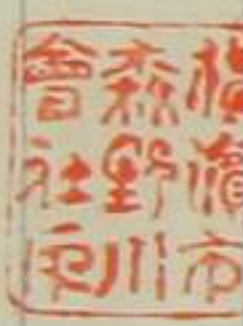 横濱市
森野川
會社印